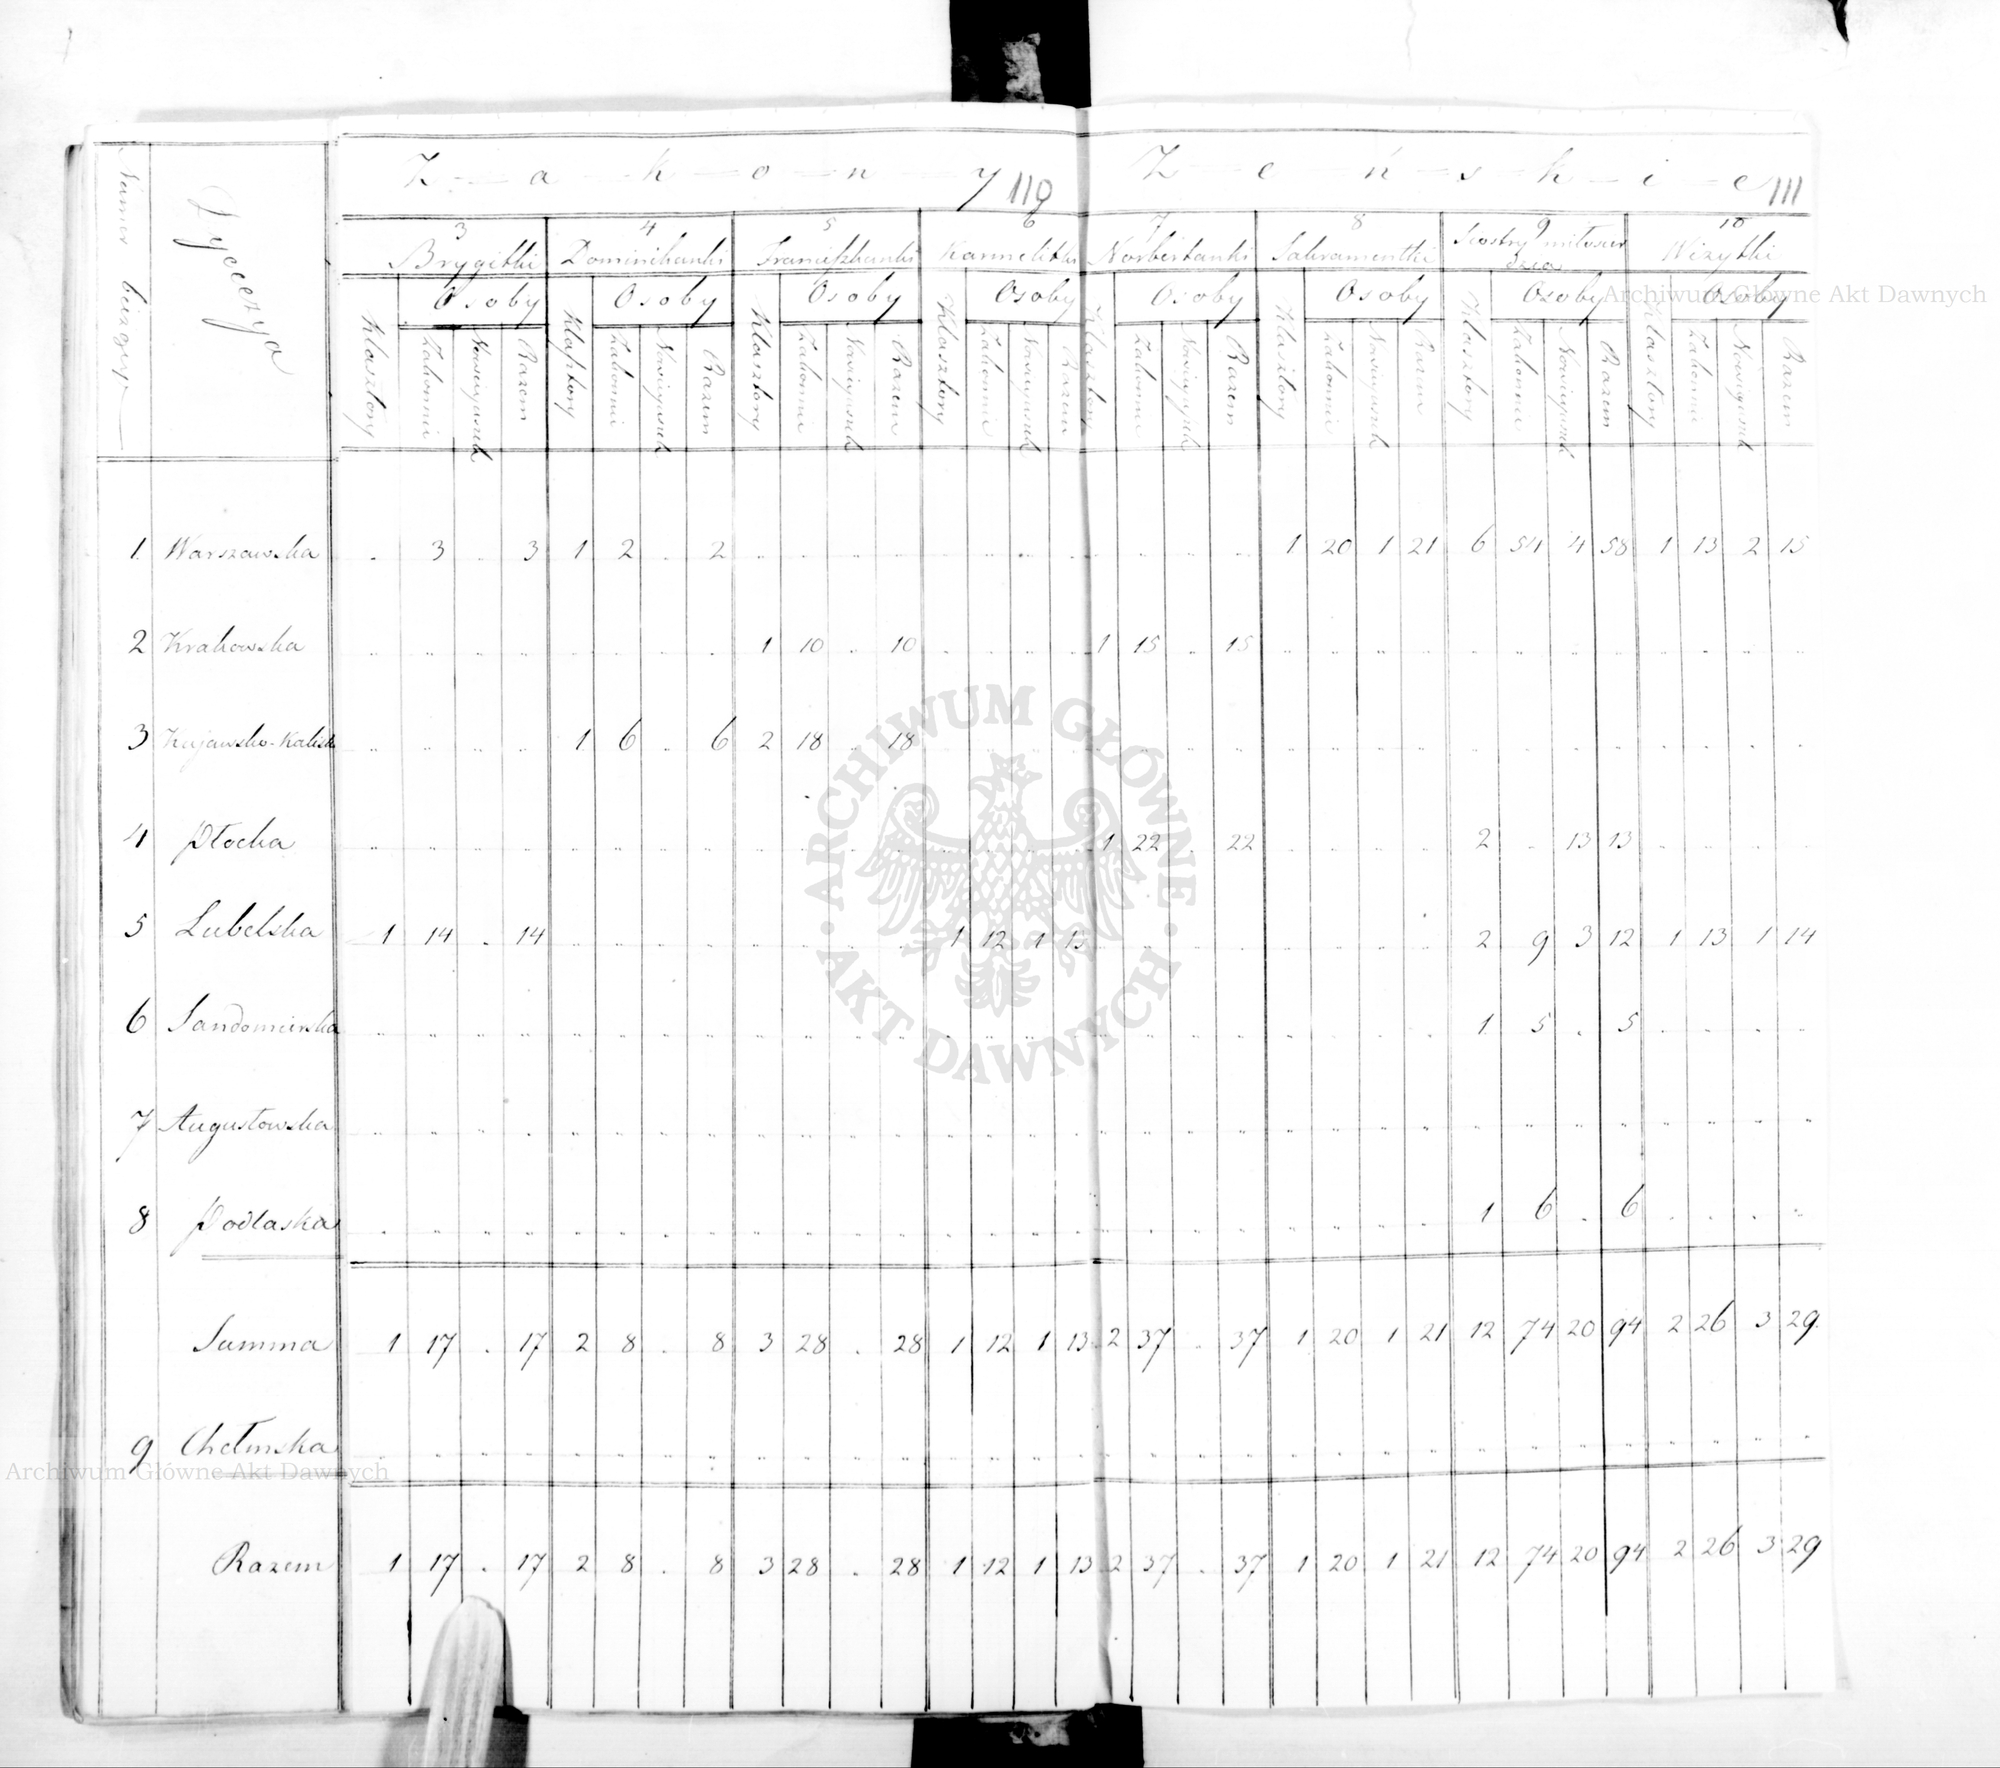 Z a k o n y 110 Ż e ń s k i e 111
Numer bieżący Dyecezya
3 4 5 6 7 8 9 10
Brygitki Dominikanki Franciszkanki Karmelitki Norbertanki Sakramentki Siostry miłosier Wizytki
dzia
Osoby Osoby Osoby Osoby Osoby Osoby Osoby Osoby
Klasztory Zakonnic Nowicyuszk Razem Klasztory Zakonnic Nowicyuszk Razem Klasztory Zakonnic Nowicyuszk Razem Klasztory Zakonnic Nowicyuszk Razem Klasztory Zakonnic Nowicyuszk Razem Klasztory Zakonnic Nowicyuszk Razem Klasztory Zakonnic Nowicyuszk Razem Klasztory Zakonnic Nowicyuszk Razem
1. Warszawska . 3 . 3 1 2 . 2 . . . . . . . . . . . . 1 20 1 21 6 54 4 58 1 13 2 15
2 Krakowska . . . . . . . . 1 10 . 10 . . . . 1 15 . 15 . . . . . . . . . . . .
3 Kujawsko-Kaliska . . . . 1 6 . 6 2 18 . 18 . . . . . . . . . . . . . . . . . . . .
4 Płocka . . . . . . . . . . . . . . . . 1 22 . 22 . . . . 2 . 13 13 . . . .
5 Lubelska 1 14 . 14 . . . . . . . . 1 12 1 13 . . . . . . . . 2 9 3 12 1 13 1 14
6 Sandomirska . . . . . . . . . . . . . . . . . . . . . . . . 1 5 . 5 . . . .
7 Augustowska . . . . . . . . . . . . . . . . . . . . . . . . . . . . . . . .
8 Podlaska . . . . . . . . . . . . . . . . . . . . . . . . 1 6 . 6 . . . .
Summa 1 17 . 17 2 8 . 8 3 28 . 28 1 12 1 13 2 37 . 37 1 20 1 21 12 74 20 94 2 26 3 29
9 Chełmska . . . . . . . . . . . . . . . . . . . . . . . . . . . . . . . .
Razem 1 17 . 17 2 8 . 8 3 28 . 28 1 12 1 13 2 37 . 37 1 20 1 21 12 74 20 94 2 26 3 29
Archiwum Główne Akt Dawnych
ARCHIWUM GŁÓWNE
AKT DAWNYCH
Archiwum Główne Akt Dawnych